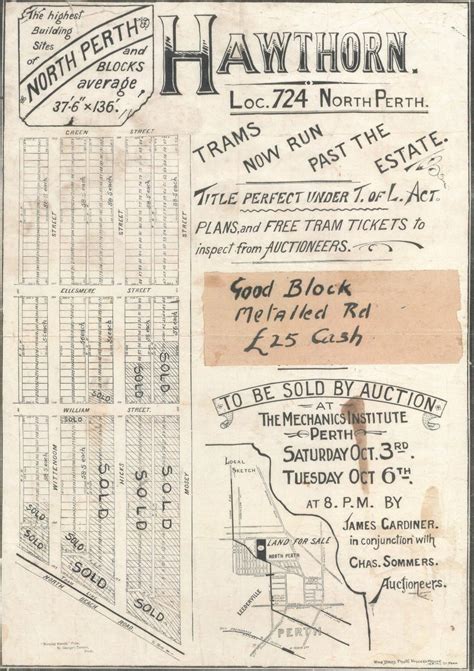 The highest
Building
Sites
or
NORTH PERTH
and
BLOCKS
average
37·6" × 136'.
HAWTHORN.
LOC. 724 NORTH PERTH.
TRAMS
NOW RUN
PAST THE
ESTATE.
TITLE PERFECT UNDER T. OF L. ACT.
PLANS, and FREE TRAM TICKETS to
inspect from AUCTIONEERS.
Good Block
Metalled Rd
£25 Cash
TO BE SOLD BY AUCTION
AT
THE MECHANICS INSTITUTE
PERTH
SATURDAY OCT. 3RD
TUESDAY OCT 6TH
AT 8. P.M. BY
JAMES GARDINER.
in conjunction with
CHAS. SOMMERS.
Auctioneers.
GREEN STREET
STREET
STREET
ELLESMERE STREET
WILLIAM STREET.
WITTENOOM
HICKS
MOSEY
SOLD
SOLD
SOLD
SOLD
SOLD
SOLD
SOLD
SOLD
SOLD
NORTH BEACH ROAD
LOCAL
SKETCH
LAND FOR SALE
NORTH PERTH
LEEDERVILLE
PERTH